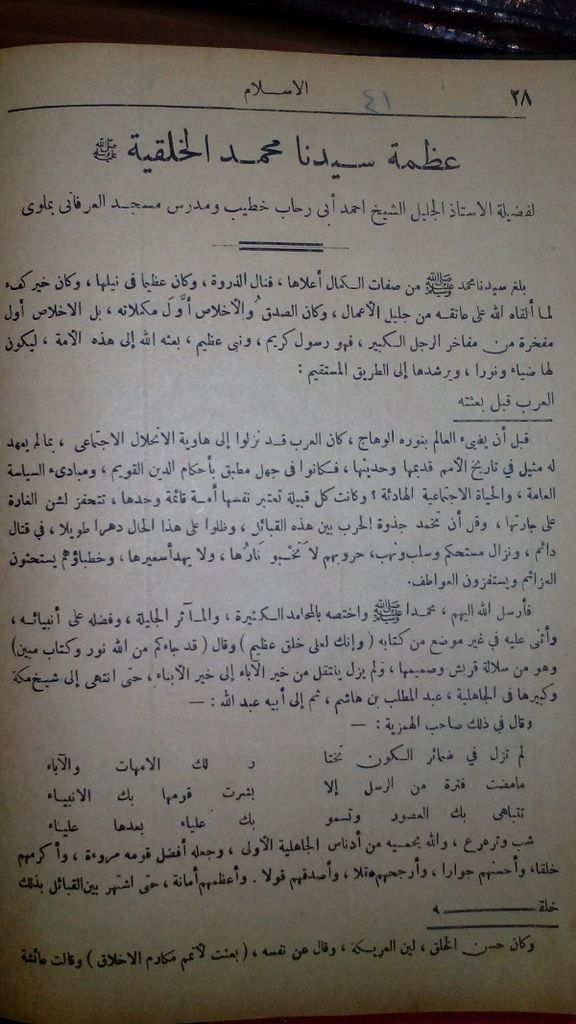 ٢٨
الاسلام
٤١
عظمة سيدنا محمد الخلقية ﷺ
لفضيلة الاستاذ الجليل الشيخ احمد أبى رحاب خطيب ومدرس مسجد العرفانى بملوى
بلغ سيدنا محمد ﷺ من صفات الكمال أعلاها ، فنال الذروة ، وكان عظيما فى نيلها ، وكان خير كفء
لما ألقاه الله على عاتقه من جليل الأعمال ، وكان الصدق والأخلاص أوَّل مكملاته ، بل الاخلاص أول
مفخرة من مفاخر الرجل الكبير ، فهو رسول كريم ، ونبى عظيم ، بعثه الله إلى هذه الأمة ، ليكون
لها ضياء ونورا ، ويرشدها إلى الطريق المستقيم :
العرب قبل بعثته
قبل أن يضىء العالم بنوره الوهاج ، كان العرب قد نزلوا إلى هاوية الانحلال الاجتماعى ، بما لم يعهد
له مثيل في تاريخ الأمم قديمها وحديثها ، فكانوا فى جهل مطبق بأحكام الدين القويم ، ومبادىء السياسة
العامة ، والحياة الاجتماعية الهادئة ؟ وكانت كل قبيلة تعتبر نفسها أمة قائمة وحدها ، تتحفز لشن الغارة
على جارتها ، وقل أن تخمد جذوة الحرب بين هذه القبائل ، وظلوا على هذا الحال دهرا طويلا ، فى قتال
دائم ، ونزال مستحكم وسلب ونهب، حروبهم لا تخبو نارُها ، ولا يهدأ سعيرها ، وخطباؤهم يستحثون
العزائم ويستفزون العواطف.
فأرسل الله اليهم ، محمدا ﷺ واختصه بالمحامد الكثيرة ، والمآثر الجليلة ، وفضله على أنبيائه ،
وأثنى عليه فى غير موضع من كتابه ( وإنك لعلى خلق عظيم ) وقال ( قد جاءكم من الله نور وكتاب مبين)
وهو من سلالة قريش وصميمها ، ولم يزل ينتقل من خير الآباء إلى خير الأبناء ، حتى انتهى إلى شيخ مكة
وكبيرها فى الجاهلية ، عبد المطلب بن هاشم ، ثم إلى أبيه عبد الله : —
وقال فى ذلك صاحب الهمزية : —
لم تزل في ضمائر الكون تختا ر لك الامهات والآباء
مامضت فترة من الرسل إلا بشرت قومها بك الانبياء
تتباهى بك العصور وتسمو بك علياء بعدها علياء
شب وترعرع ، والله يحميه من أدناس الجاهلية الأولى ، وجعله أفضل قومه مروءة ، وأكرمهم
خلقا، وأحسنهم جوارا ، وأرجحهم عقلا ، وأصدقهم قولا . وأعظمهم أمانة ، حتى اشتهر بين القبائل بذلك
خلقـــــــه
وكان حسن الخلق ، لين العريكة ، وقال عن نفسه ، ( بعثت لأتمم مكارم الاخلاق ) وقالت عائشة